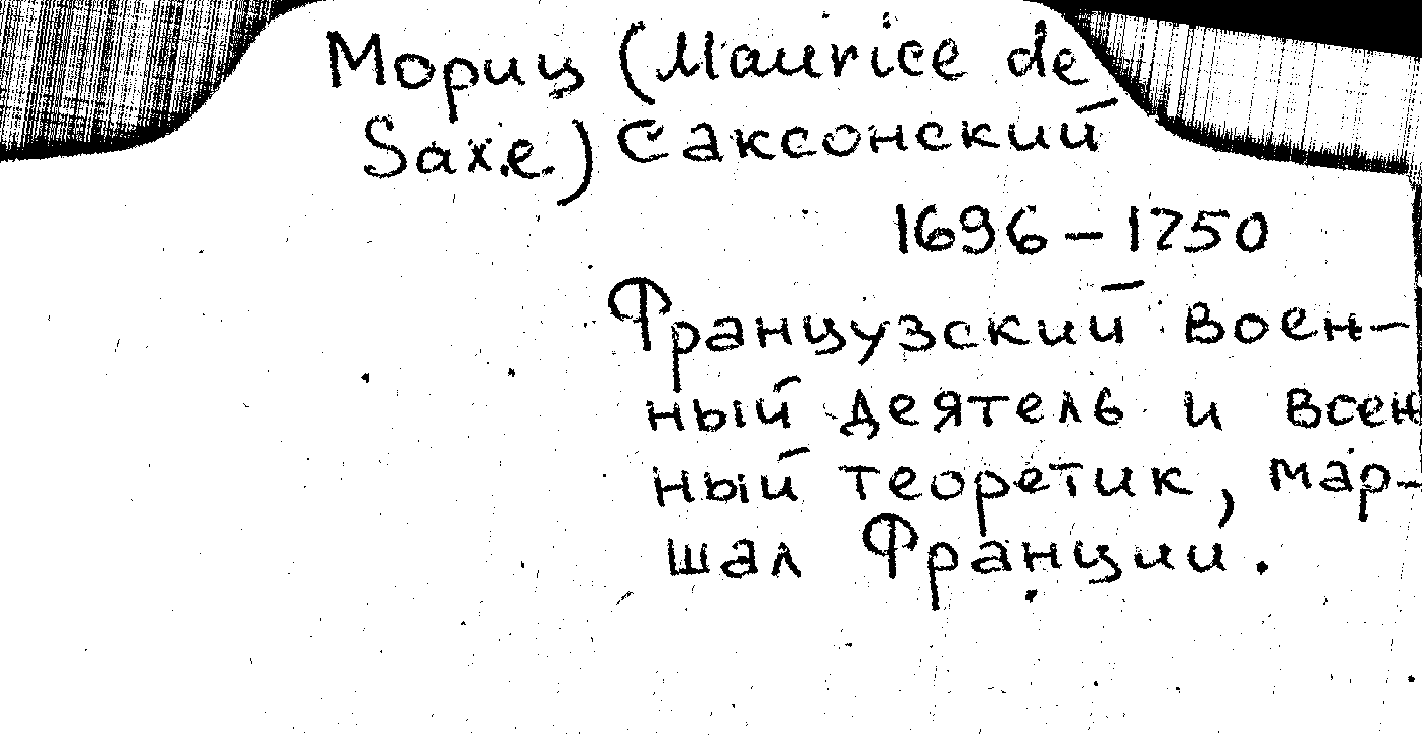 Мориц (Maurice de
Saxe) Саксонский
1696 – 1750
Французский воен-
ный деятель и воен
ный теоретик, мар-
шал Франции.